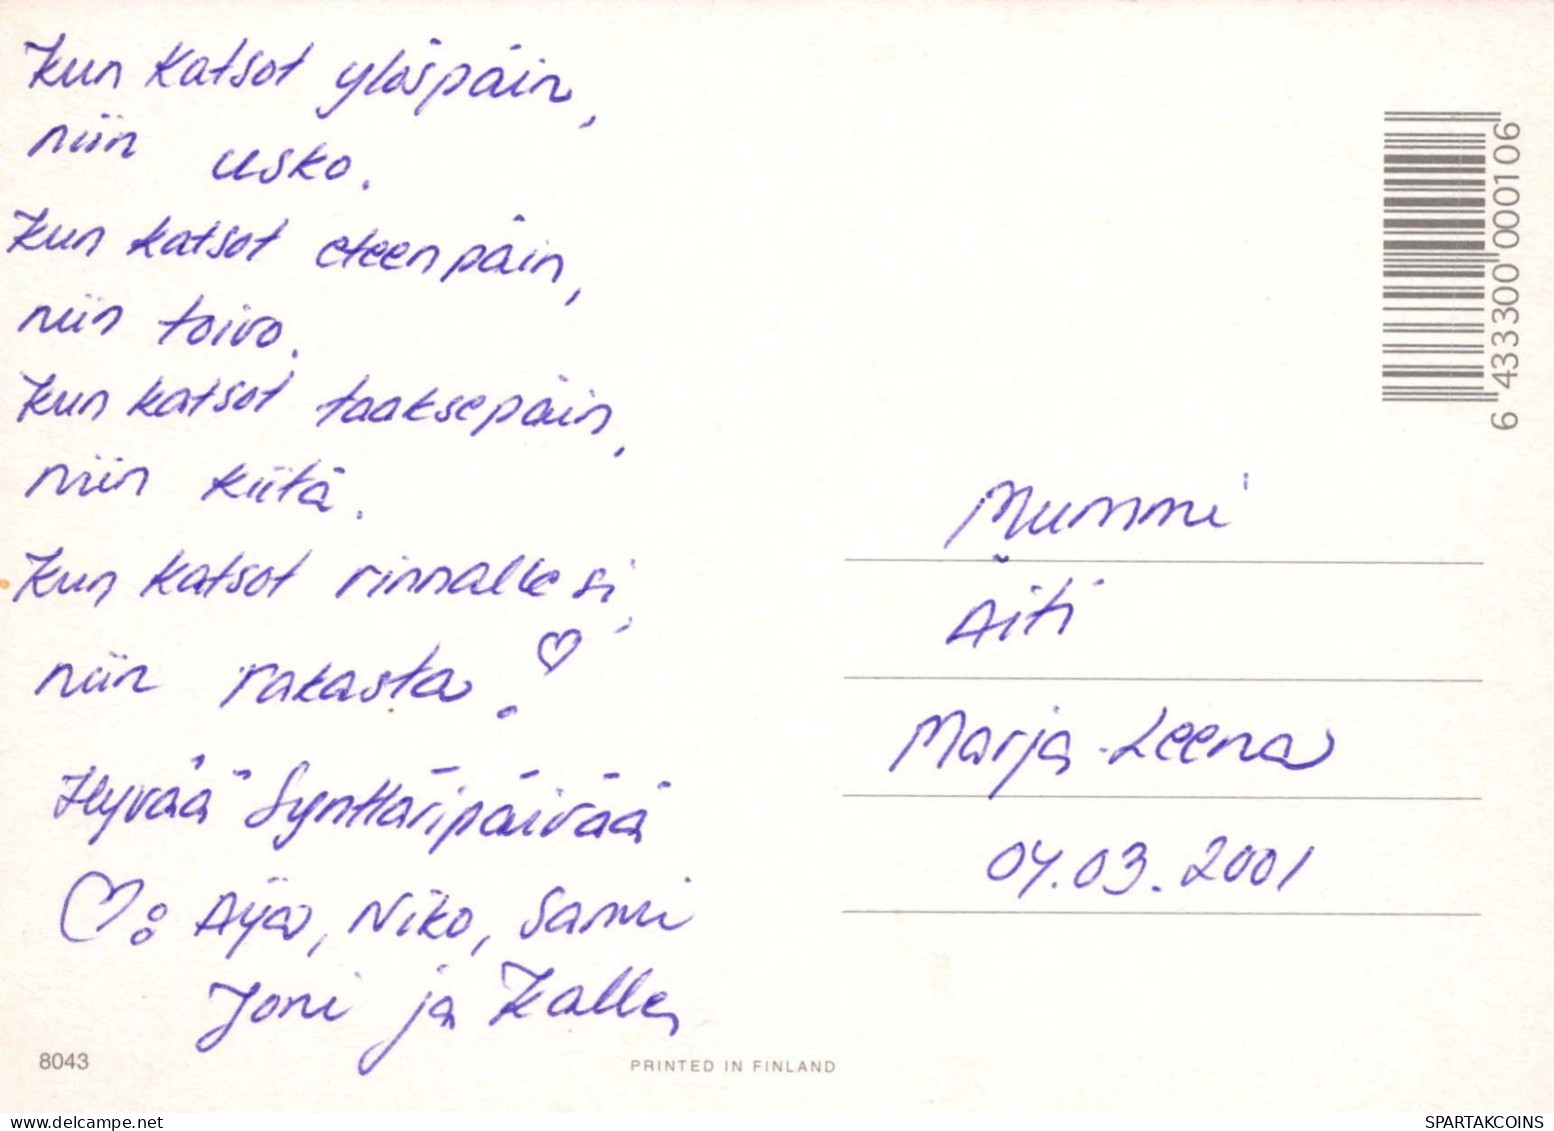 Kun katsot ylöspäin,
niin usko.
Kun katsot eteenpäin,
niin toivo.
Kun katsot taaksepäin,
niin kiitä.
Kun katsot rinnallesi,
niin rakasta.
Hyvää Synttäripäivää
: Aija, Niko, Sami
Joni ja Kalle
8043
PRINTED IN FINLAND
6 433300 000106
Mummi
Äiti
Marja-Leena
04.03.2001
delcampe.net
SPARTAKCOINS